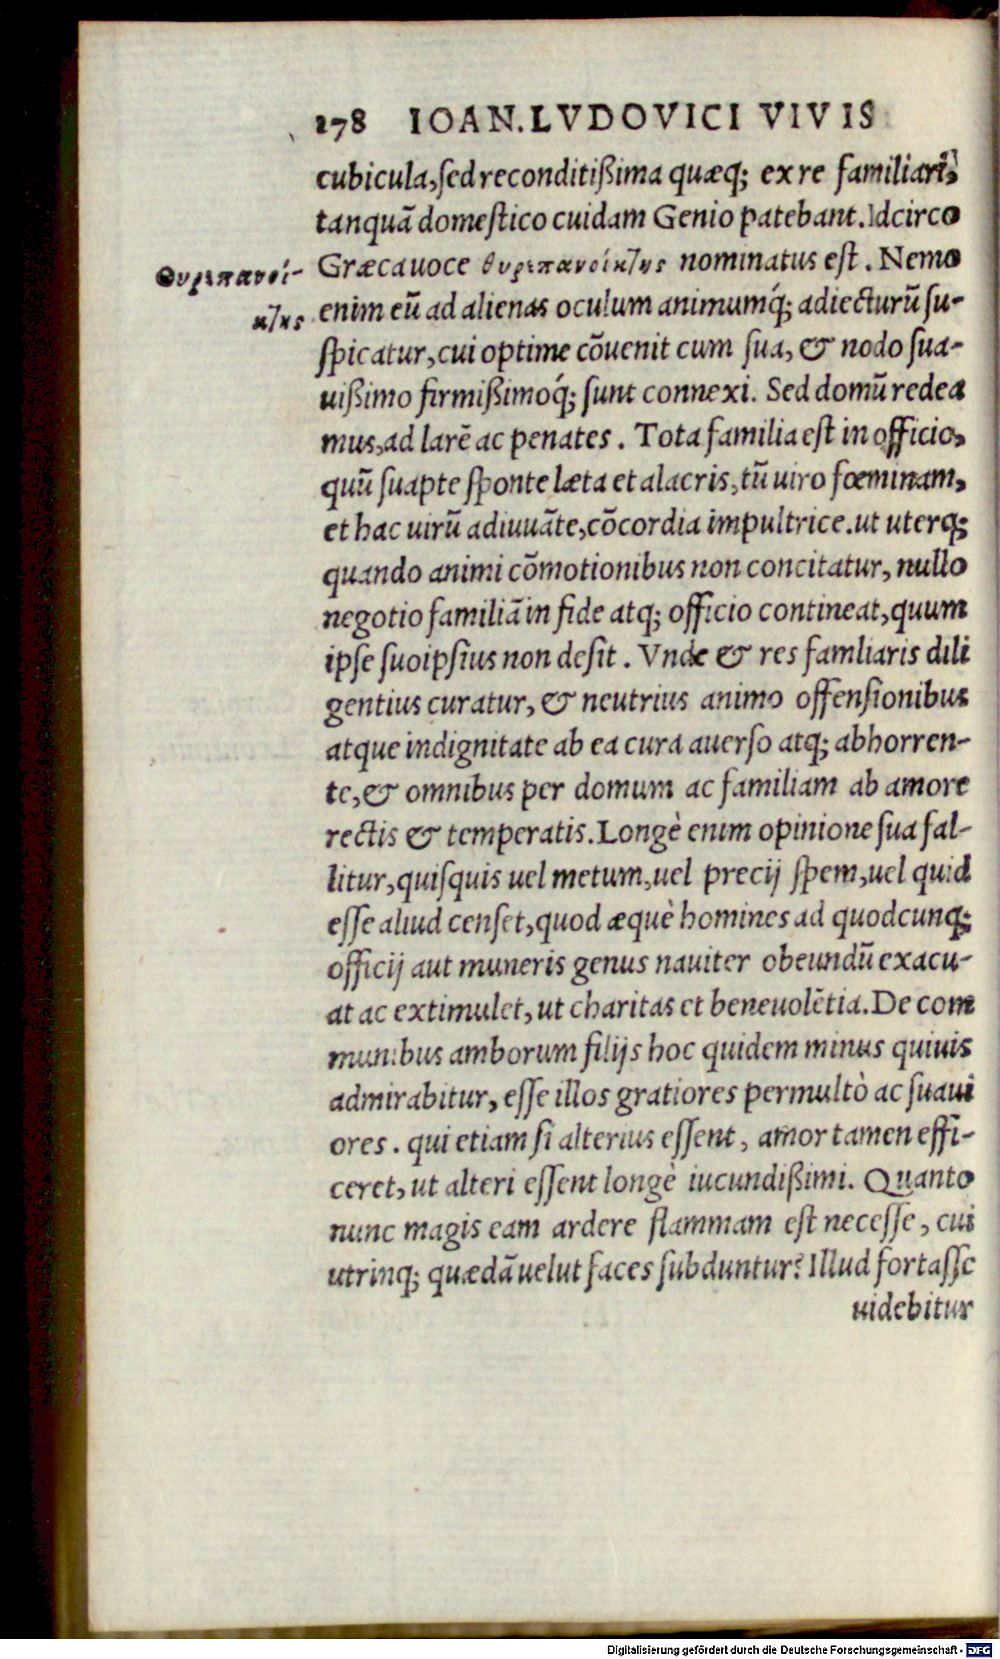 278 IOAN. LVDOVICI VIVIS
cubicula, sed reconditißima quæq; ex re familiari,
tanquã domestico cuidam Genio patebant. Idcirco
Græca uoce θυρεπανοίκτης nominatus est. Nemo
Θυρεπανοί-
κτης
enim eũ ad alienas oculum animumq́; adiecturũ su-
spicatur, cui optime cõuenit cum sua, & nodo sua-
uißimo firmißimoq́; sunt connexi. Sed domũ redea
mus, ad larẽ ac penates. Tota familia est in officio,
quũ suapte sponte læta et alacris, tũ uiro fœminam,
et hac uirũ adiuuãte, cõcordia impultrice. ut uterq;
quando animi cõmotionibus non concitatur, nullo
negotio familiã in fide atq; officio contineat, quum
ipse suoipsius non desit. Vnde & res famliaris dili
gentius curatur, & neutrius animo offensionibus
atque indignitate ab ea cura auerso atq; abhorren-
te, & omnibus per domum ac familiam ab amore
rectis & temperatis. Longè enim opinione sua fal-
litur, quisquis uel metum, uel precij spem, uel quid
esse aliud censet, quod æquè homines ad quodcunq;
officij aut muneris genus nauiter obeundũ exacu-
at ac extimulet, ut charitas et beneuolẽtia. De com
munibus amborum filijs hoc quidem minus quiuis
admirabitur, esse illos gratiores permultò ac suaui
ores. qui etiam si alterius essent, amor tamen effi-
ceret, ut alteri essent longè iucundißimi. Quanto
nunc magis eam ardere flammam est necesse, cui
utrinq; quædã uelut faces subduntur? Illud fortasse
uidebitur
Digitalisierung gefördert durch die Deutsche Forschungsgemeinschaft - DFG